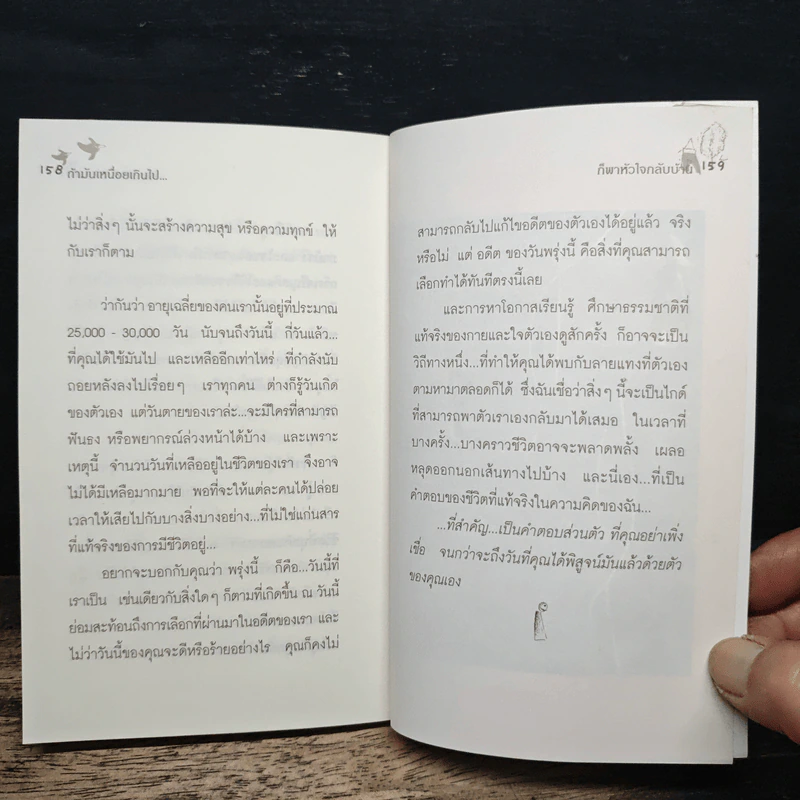 158 ถ้ามันเหนื่อยเกินไป...
ไม่ว่าสิ่งๆ นั้นจะสร้างความสุข หรือความทุกข์ ให้
กับเราก็ตาม
ว่ากันว่า อายุเฉลี่ยของคนเรานั้นอยู่ที่ประมาณ
25,000 - 30,000 วัน นับจนถึงวันนี้ กี่วันแล้ว...
ที่คุณได้ใช้มันไป และเหลืออีกเท่าไหร่ ที่กำลังนับ
ถอยหลังลงไปเรื่อยๆ เราทุกคน ต่างก็รู้วันเกิด
ของตัวเอง แต่วันตายของเราล่ะ...จะมีใครที่สามารถ
ฟันธง หรือพยากรณ์ล่วงหน้าได้บ้าง และเพราะ
เหตุนี้ จำนวนวันที่เหลืออยู่ในชีวิตของเรา จึงอาจ
ไม่ได้มีเหลือมากมาย พอที่จะให้แต่ละคนได้ปล่อย
เวลาให้เสียไปกับบางสิ่งบางอย่าง...ที่ไม่ใช่แก่นสาร
ที่แท้จริงของการมีชีวิตอยู่...
อยากจะบอกกับคุณว่า พรุ่งนี้ ก็คือ...วันนี้ที่
เราเป็น เช่นเดียวกับสิ่งใดๆ ก็ตามที่เกิดขึ้น ณ วันนี้
ย่อมสะท้อนถึงการเลือกที่ผ่านมาในอดีตของเรา และ
ไม่ว่าวันนี้ของคุณจะดีหรือร้ายอย่างไร คุณก็คงไม่
ก็พาหัวใจกลับบ้าน 159
สามารถกลับไปแก้ไขอดีตของตัวเองได้อยู่แล้ว จริง
หรือไม่ แต่ อดีต ของวันพรุ่งนี้ คือสิ่งที่คุณสามารถ
เลือกทำได้ทันทีตรงนี้เลย
และการหาโอกาสเรียนรู้ ศึกษาธรรมชาติที่
แท้จริงของกายและใจตัวเองดูสักครั้ง ก็อาจจะเป็น
วิถีทางหนึ่ง...ที่ทำให้คุณได้พบกับลายแทงที่ตัวเอง
ตามหามาตลอดก็ได้ ซึ่งฉันเชื่อว่าสิ่งๆ นี้จะเป็นไกด์
ที่สามารถพาตัวเราเองกลับมาได้เสมอ ในเวลาที่
บางครั้ง...บางคราวชีวิตอาจจะพลาดพลั้ง เผลอ
หลุดออกนอกเส้นทางไปบ้าง และนี่เอง...ที่เป็น
คำตอบของชีวิตที่แท้จริงในความคิดของฉัน...
...ที่สำคัญ...เป็นคำตอบส่วนตัว ที่คุณอย่าเพิ่ง
เชื่อ จนกว่าจะถึงวันที่คุณได้พิสูจน์มันแล้วด้วยตัว
ของคุณเอง